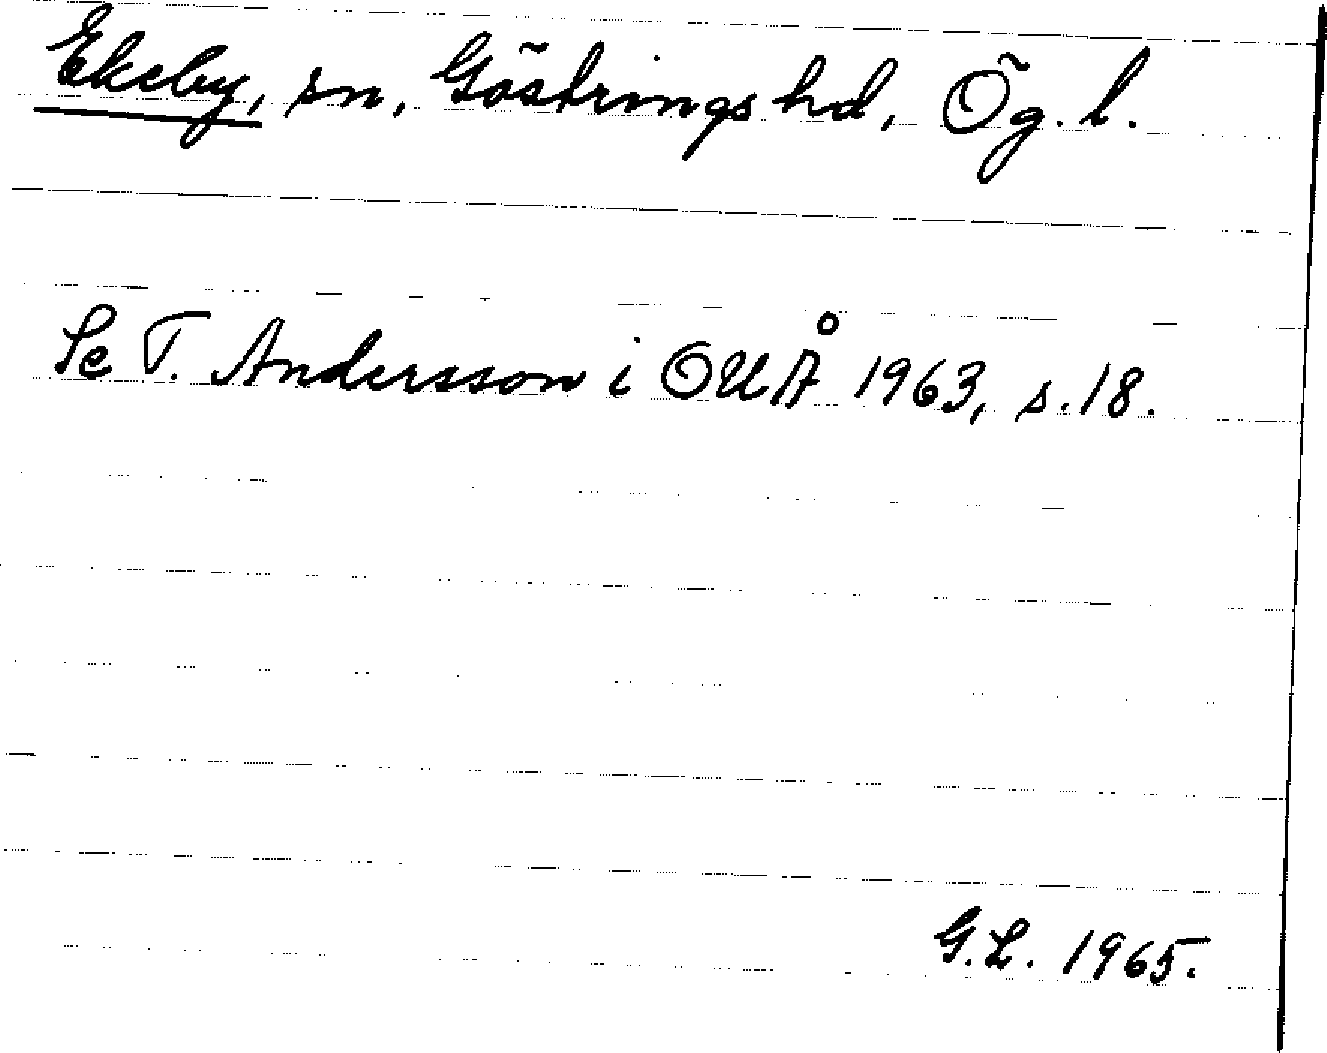 Ekeby, sn, Göstrings hd, Ög. l.
Se T. Andersson i OUÅ 1963, s. 18.
G.L. 1965.